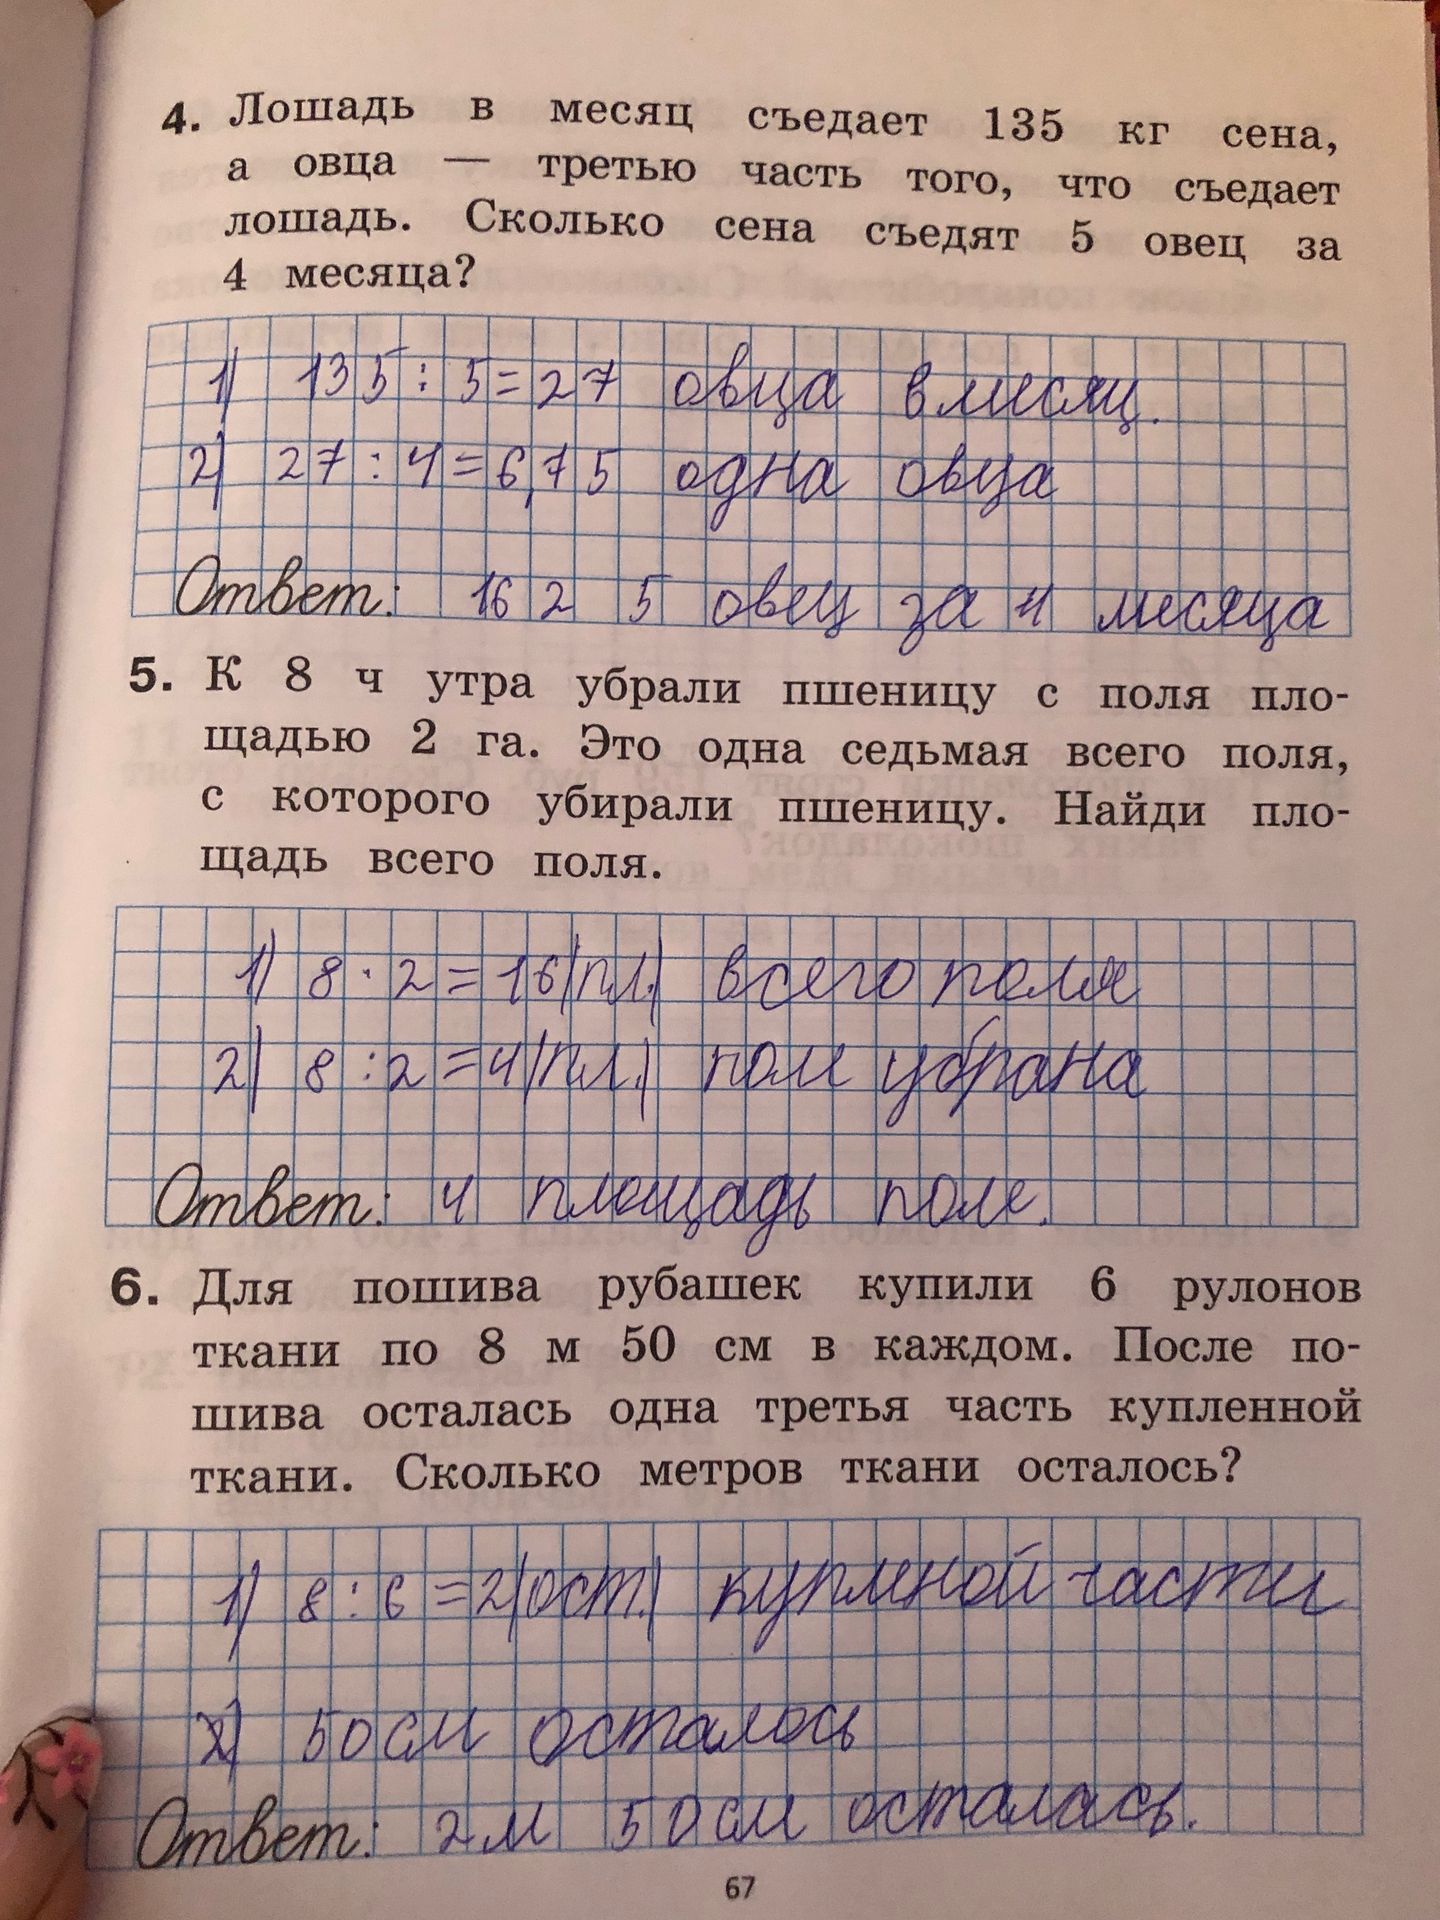 4. Лошадь в месяц съедает 135 кг сена,
а овца — третью часть того, что съедает
лошадь. Сколько сена съедят 5 овец за
4 месяца?
1) 135 : 5 = 27 овца в месяц.
2) 27 : 4 = 6,75 одна овца
Ответ: 162 5 овец за 4 месяца
5. К 8 ч утра убрали пшеницу с поля пло-
щадью 2 га. Это одна седьмая всего поля,
с которого убирали пшеницу. Найди пло-
щадь всего поля.
1) 8 · 2 = 16 (пл.) всего поля
2) 8 : 2 = 4 (пл.) поле убрана
Ответ: 4 площадь поле.
6. Для пошива рубашек купили 6 рулонов
ткани по 8 м 50 см в каждом. После по-
шива осталась одна третья часть купленной
ткани. Сколько метров ткани осталось?
1) 8 : 6 = 2 (ост.) части
2) 50 см осталось
Ответ: 2 м 50 см осталась.
67